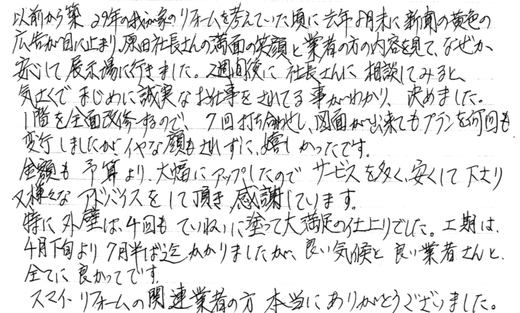 以前から築29年の我が家のリフォームを考えていた頃に去年8月末に新聞の黄色の
広告が目に止まり、原田社長さんの満面の笑顔と業者の方の内容を見て、なぜか、
安心して展示場に行きました。2週間後に社長さんに相談してみると、
気さくでまじめに誠実なお仕事をされてる事がわかり、決めました。
1階を全面改修するので、7回打ち合わせし、図面が出来てもプランを何回も
変更しましたがイヤな顔もされずに、嬉しかったです。
金額も予算より、大幅にアップしたのでサービスを多く、安くして下さり
又様々なアドバイスをして頂き感謝しています。
特に外壁は、4回もていねいに塗って大満足の仕上りでした。工期は、
4月下旬より7月半ば迄かかりましたが、良い気候と良い業者さんと、
全てに良かってです。
スマイルリフォームの関連業者の方本当にありがとうございました。